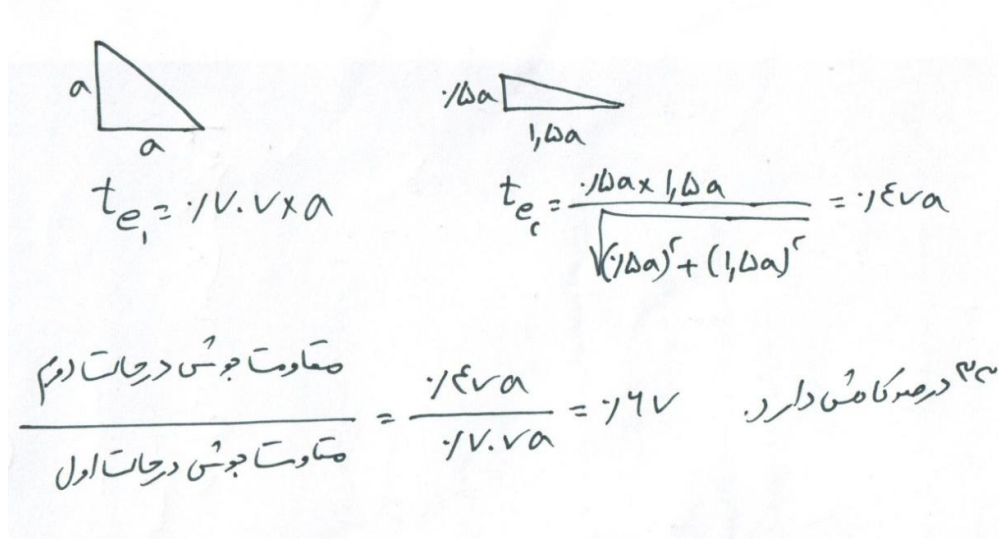 a
a
۰/۵a
۱,۵a
te₁ = ۰/۷۰۷ × a
te₂ = ۰/۵a × ۱,۵a / √((۰/۵a)² + (۱,۵a)²) = ۰/۴۷a
مقاومت جوش در حالت دوم / مقاومت جوش در حالت اول = ۰/۴۷a / ۰/۷۰۷a = ۰/۶۷
۳۳ درصد کاهش دارد.